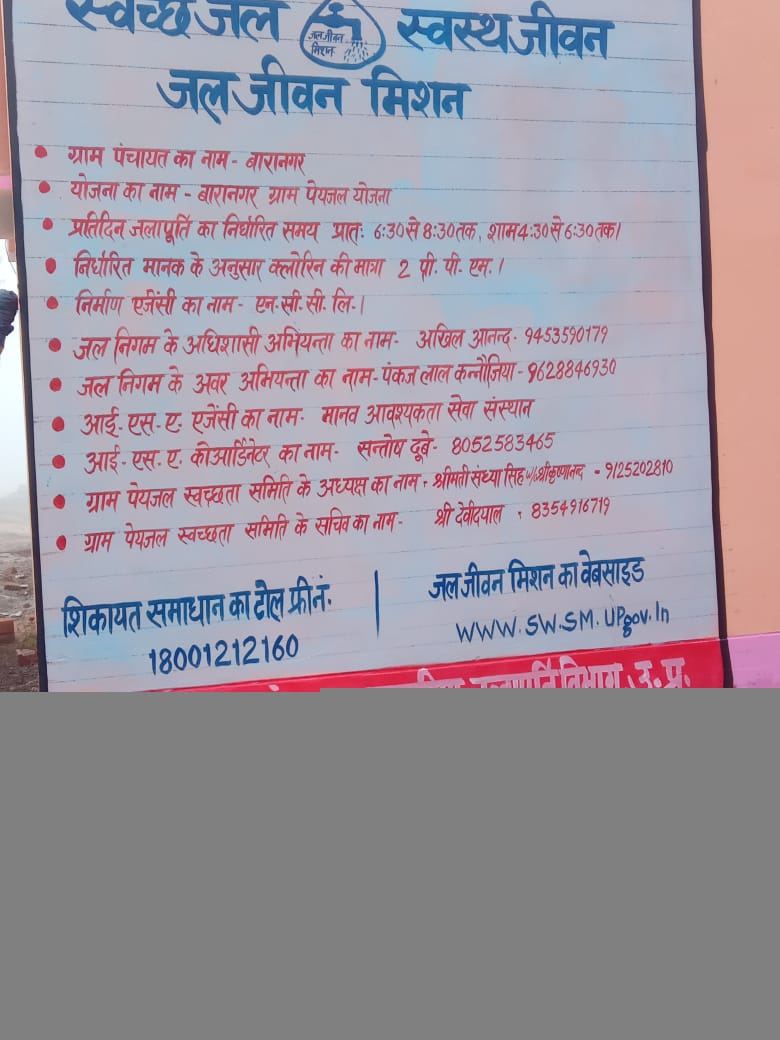 स्वच्छ जल जल जीवन मिशन स्वस्थ जीवन
जल जीवन मिशन
• ग्राम पंचायत का नाम - बारानगर
• योजना का नाम - बारानगर ग्राम पेयजल योजना
• प्रतिदिन जलापूर्ति का निर्धारित समय प्रातः 6:30 से 8:30 तक, शाम 4:30 से 6:30 तक।
• निर्धारित मानक के अनुसार क्लोरिन की मात्रा 2 पी. पी. एम.।
• निर्माण एजेंसी का नाम - एन.सी.सी. लि.।
• जल निगम के अधिशासी अभियन्ता का नाम- अखिल आनन्द - 9453590179
• जल निगम के अवर अभियन्ता का नाम - पंकज लाल कन्नौजिया - 9628846930
• आई- एस- ए- एजेंसी का नाम- मानव आवश्यकता सेवा संस्थान
• आई- एस. ए. कोआर्डिनेटर का नाम- सन्तोष दूबे- 8052583465
• ग्राम पेयजल स्वच्छता समिति के अध्यक्ष का नाम - श्रीमती संध्या सिंह w/o श्री कृष्णानन्द - 9125202810
• ग्राम पेयजल स्वच्छता समिति के सचिव का नाम - श्री देवीदयाल , 8354916719
शिकायत समाधान का टोल फ्री नं. | जल जीवन मिशन का वेबसाइड
18001212160 WWW.SW.SM.UPgov.In
विभाग उ.प्र.